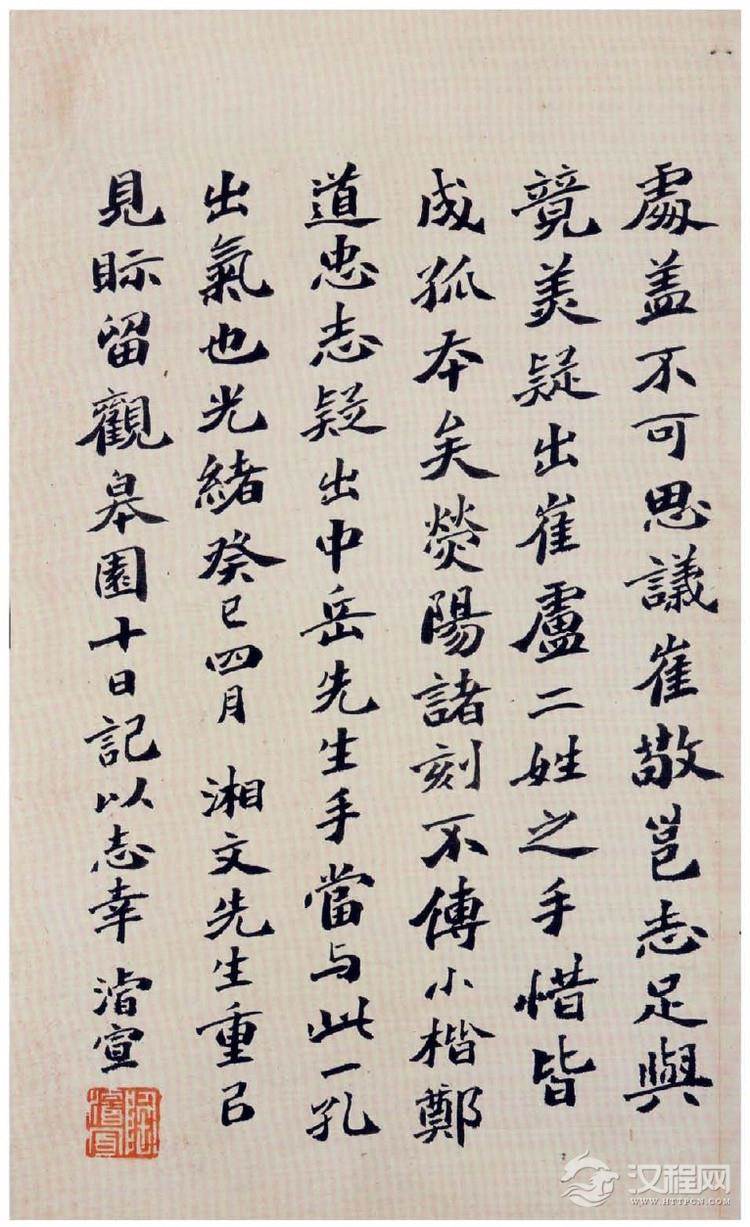 處盖不可思議崔敬邕志足與
競美疑出崔盧二姓之手惜皆
成孤本矣熒陽諸刻不傳小楷鄭
道忠志疑出中岳先生手當与此一孔
出氣也光緒癸巳四月 湘文先生重㠯
見眎留觀皋園十日記以志幸 濳宣
汉程网
WWW.HTTPCN.COM